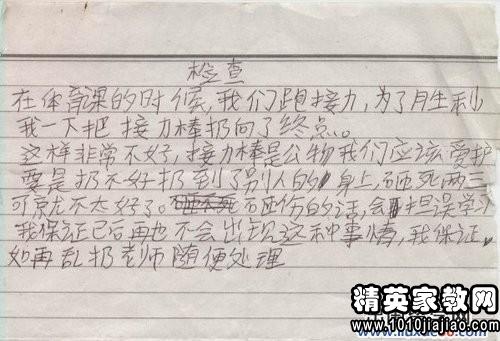 检查
在体育课的时候,我们跑接力,为了胜利
我一下把接力棒扔向了终点。
这样非常不好,接力棒是公物我们应该爱护
要是扔不好扔到了别人的身上,砸死两三
可就不太好了。砸伤的话,会担误学习
我保证已后再也不会出现这种事情,我保证.
如再乱扔老师随便处理
精英家教网
www.1010jiajiao.com